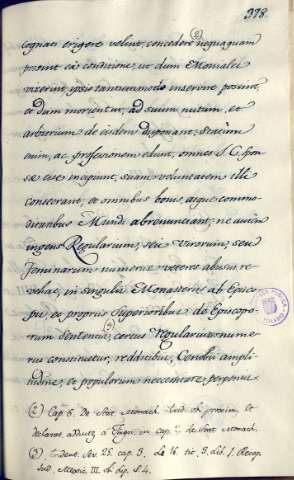 378.
cognati erigere velint, concedere (2) nequaquam
possint ea conditione, ut dum Moniales
vixerint, ipsis tantummodo inservire possint,
et dum morientur, ad suum nutum, et
arbitrium de eisdem disponant: Statim
enim, ac professionem edunt, omnes S. C. Spon
sæ esse incipiunt, suam voluntatem illi
consecrant, et omnibus bonis, atque commo
ditatibus Mundi abrenunciant; ne autem
ingens Regularium, seu Virorum, seu
Feminarum numerus veteres abusus re
vehat, in singulis Monasteriis ab Episco
pis, et propriis Superioribus de Episcopo
rum Sententia, (3) certus Regularium nume
rus constituetur, redditibus, Cenobii ampli
tudine, et populorum necessitate perpensis
(2) Cap. 6. De Stat. Monach. et
in cap. de Stat. Monach.
(3) Trident. Ses. 25. cap. 3. L. 16. tit. 3. lib. 1. Recop.
Ind. III. lib. 4.